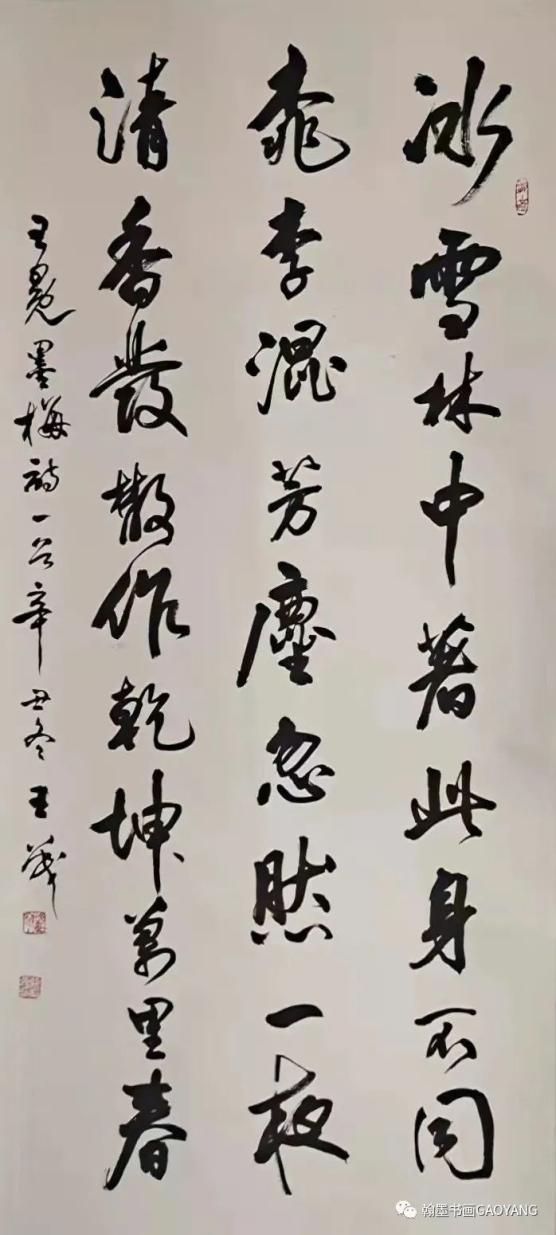 冰雪林中著此身不同
桃李混芳塵忽然一夜
清香發散作乾坤萬里春
王冕墨梅詩一首辛丑冬王
翰墨书画GAOYANG